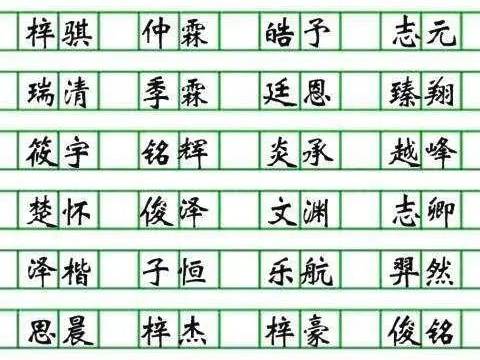 梓骐 仲霖 皓予 志元
瑞清 季霖 廷恩 臻翔
筱宇 铭辉 炎承 越峰
楚怀 俊泽 文渊 志卿
泽楷 子恒 乐航 羿然
思晨 梓杰 梓豪 俊铭